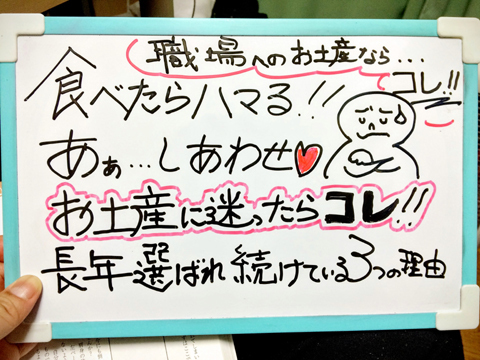 職場へのお土産なら...
コレ!!
食べたらハマる!!
あぁ...しあわせ♥
お土産に迷ったらコレ!!
長年選ばれ続けている3つの理由